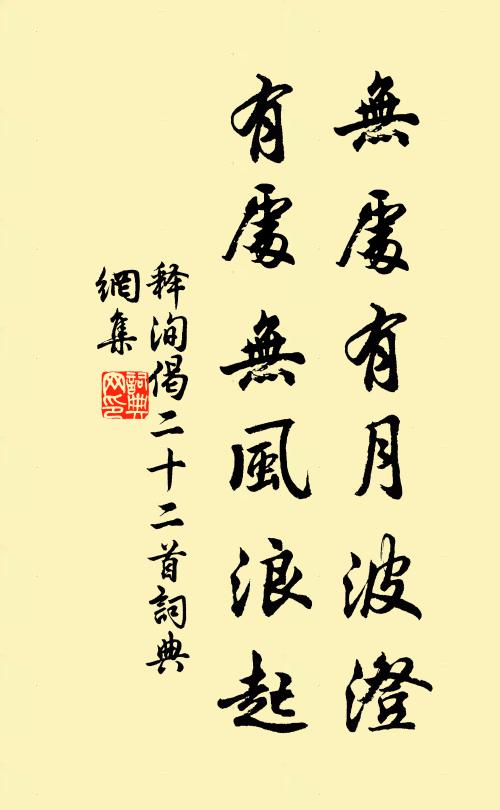 無處有月波澄
有處無風浪起
释洵偈二十二首詞典
網集
詞典
网印